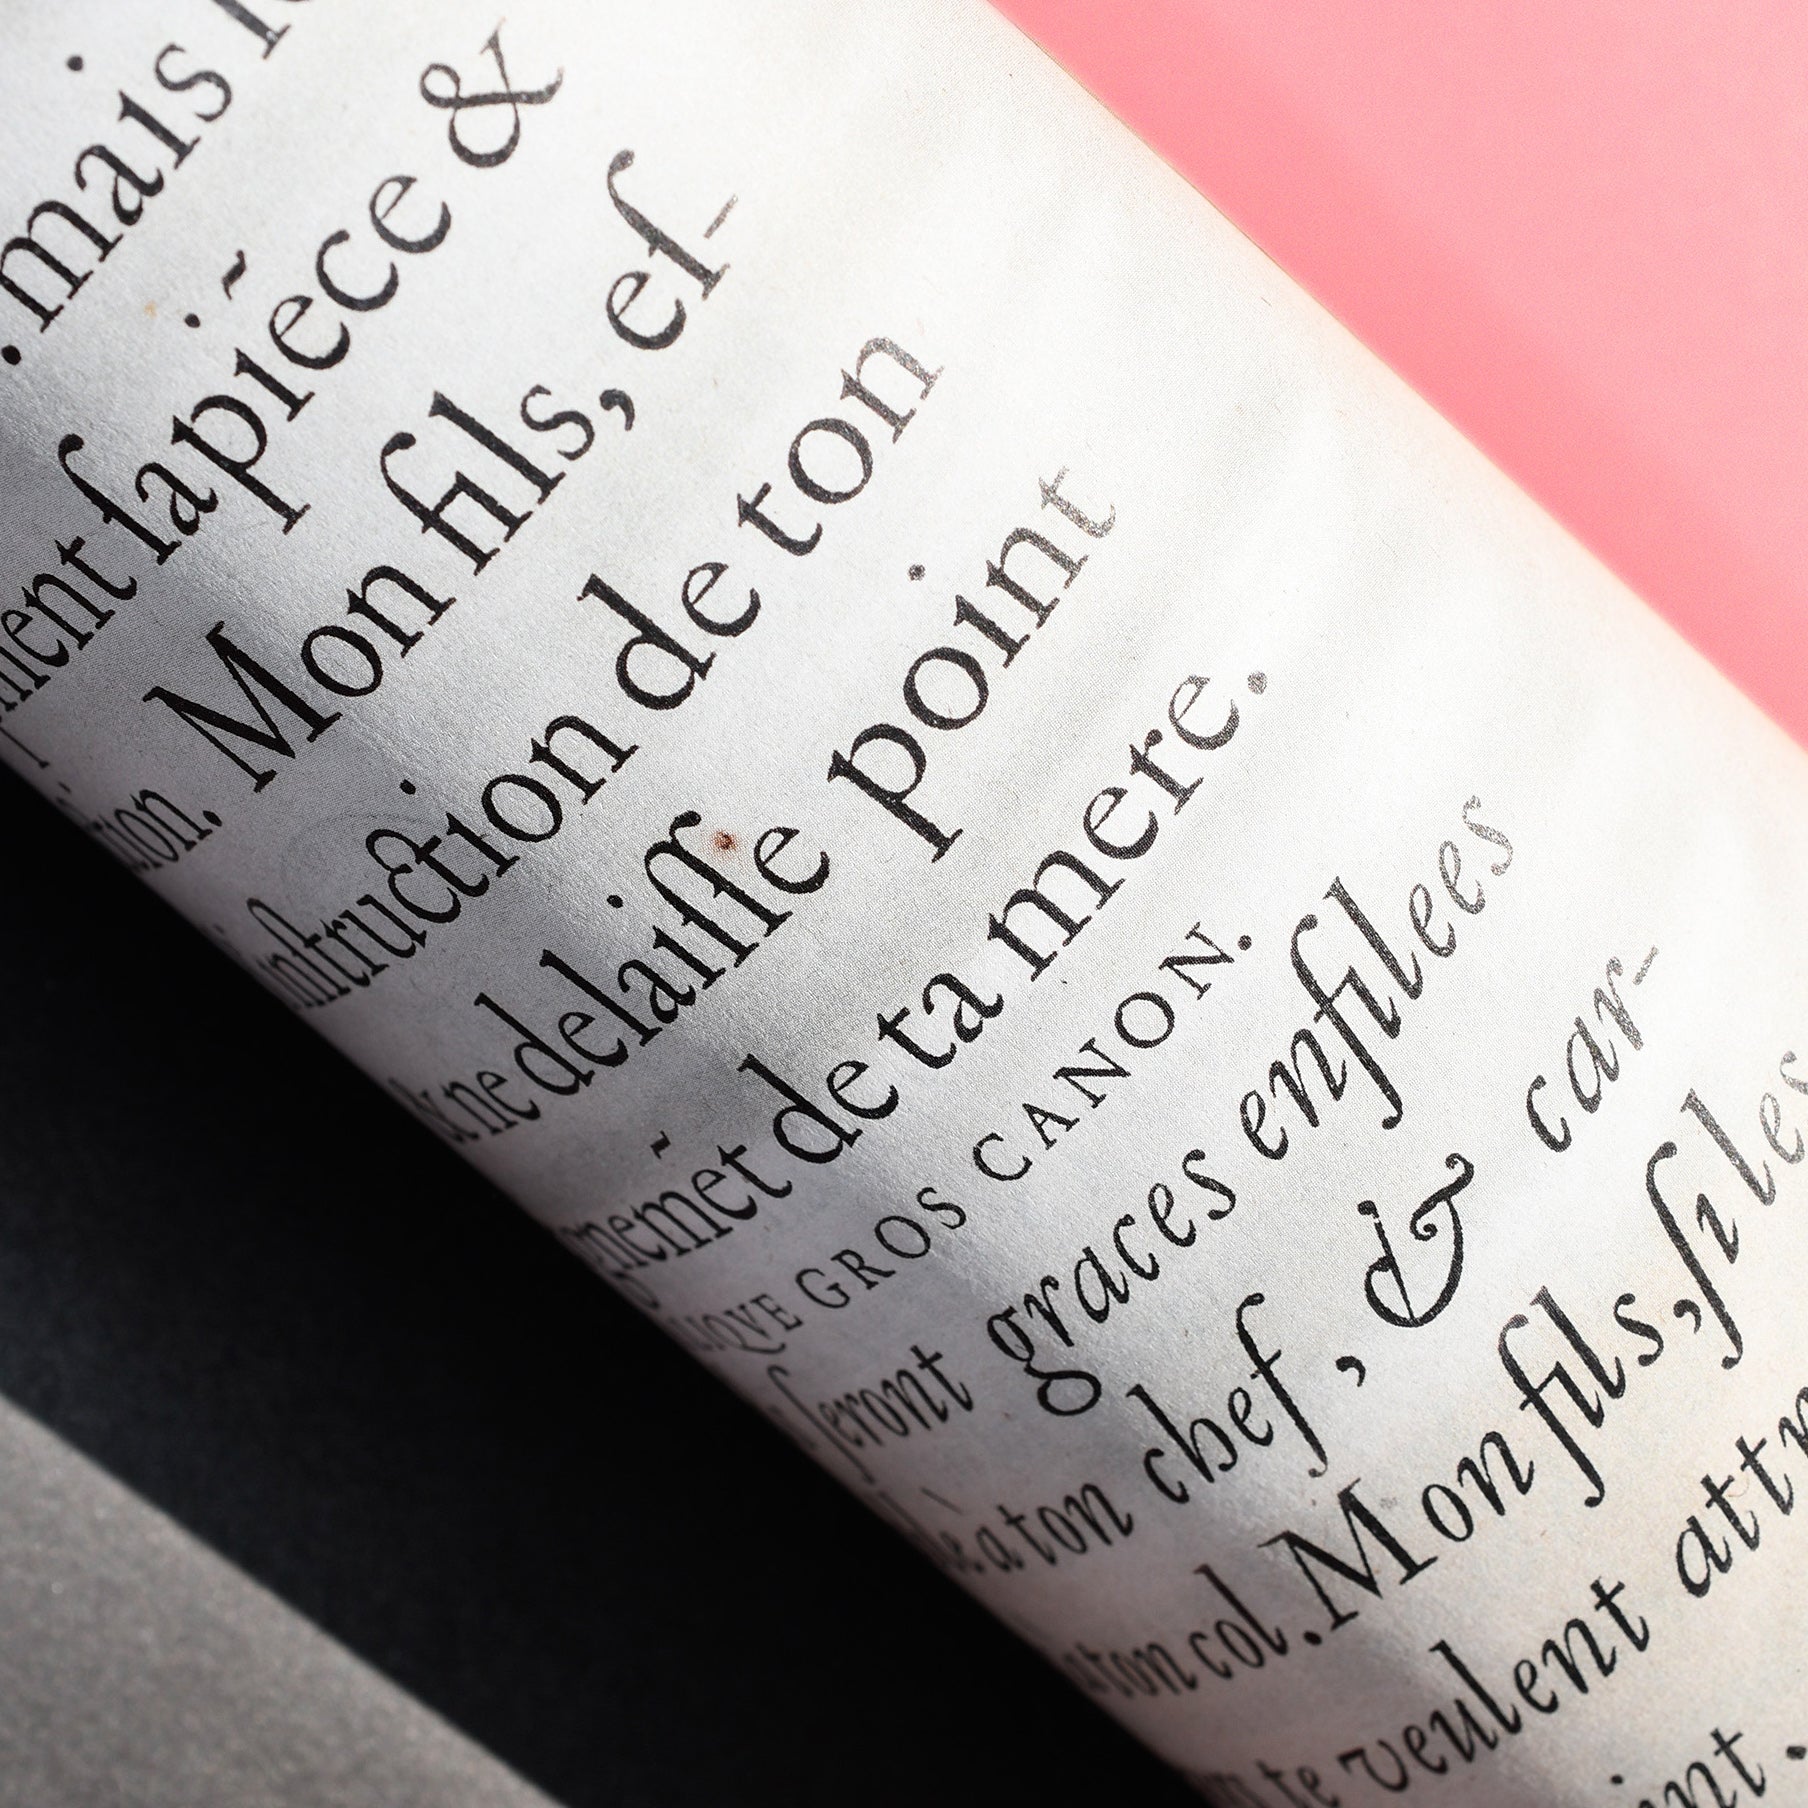 .mais
ſapiēce &
Mon fils, eſ-
inſtruction de ton
& ne delaiſſe point
de ta mere.
GROS CANON.
ſeront graces enfilees
à ton chef, & car-
ton col. Mon fils, ſi les
te veulent